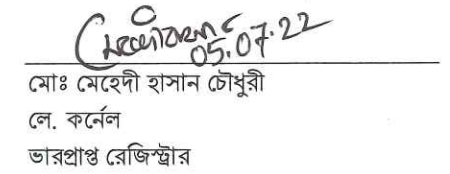 05.07.22
মোঃ মেহেদী হাসান চৌধুরী
লে. কর্নেল
ভারপ্রাপ্ত রেজিস্ট্রার